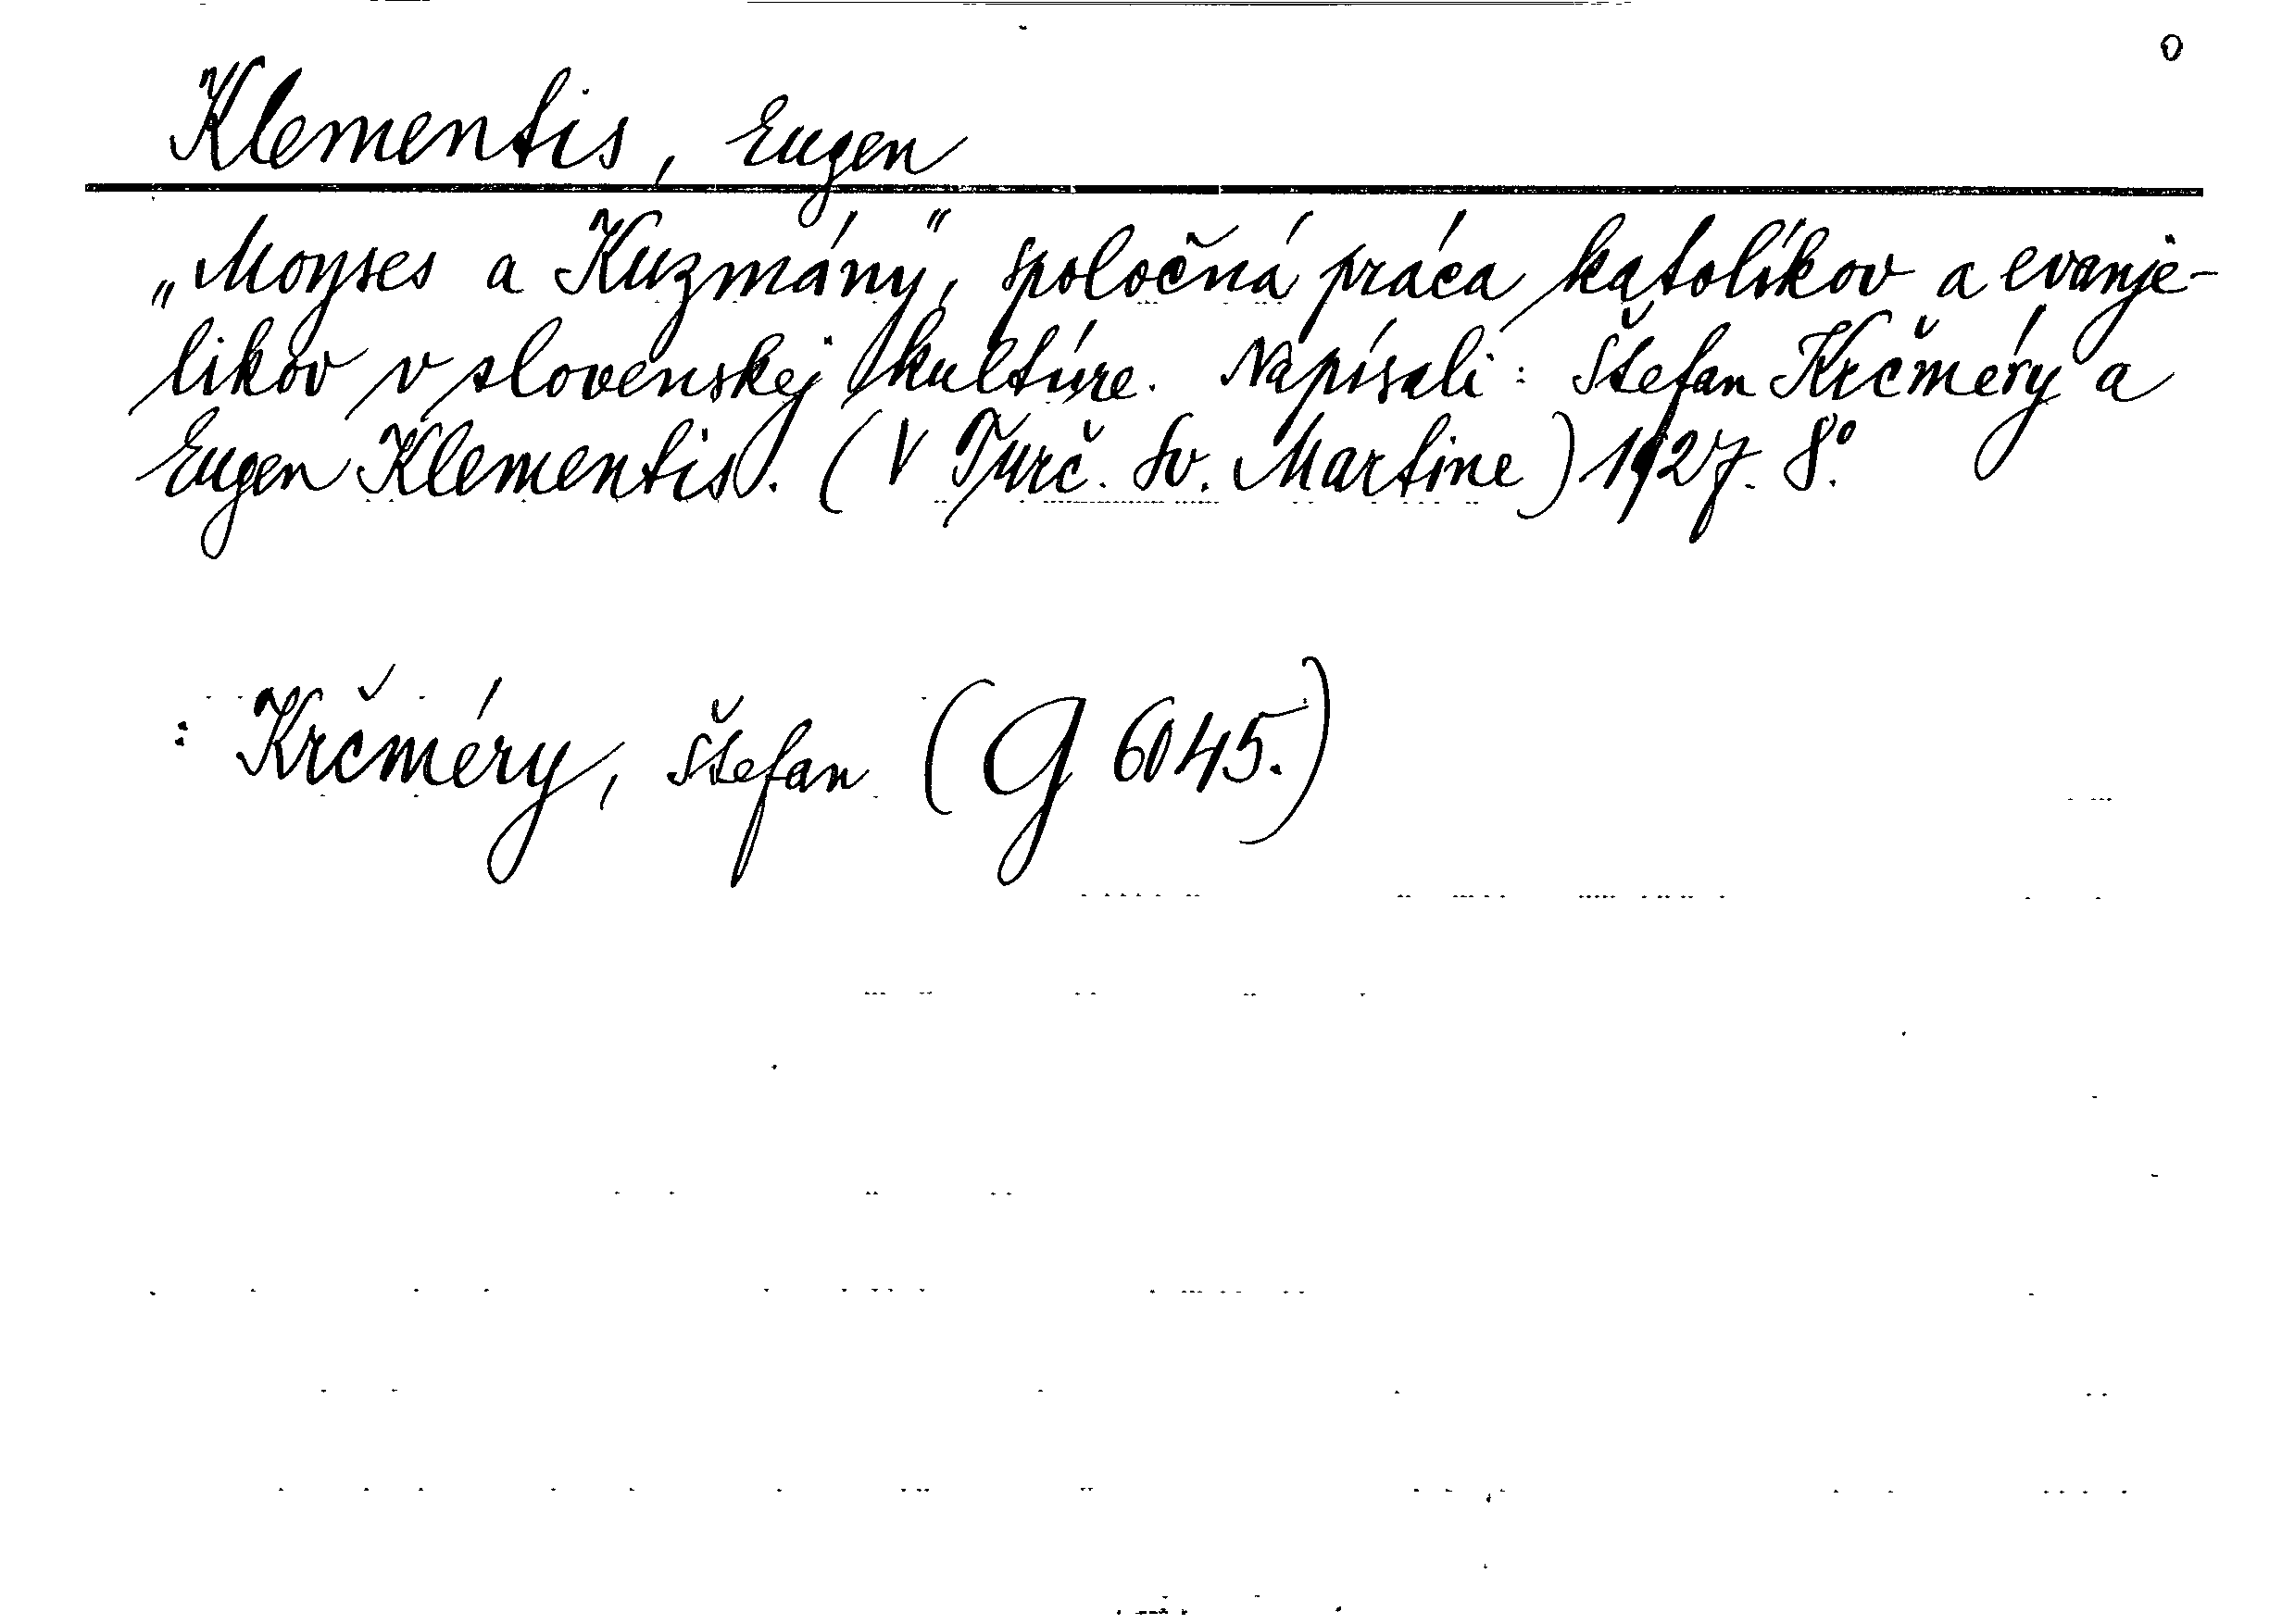 0
Klementis, Eugen
„Moyses a Kuzmány", spoločná práca katolíkov a evanje-
likov v slovenskej kultúre. Napísali: Štefan Krčméry a
Eugen Klementis. (V Turč. Sv. Martine) 1927. 8°.
: Krčméry, Štefan (G 6045.)